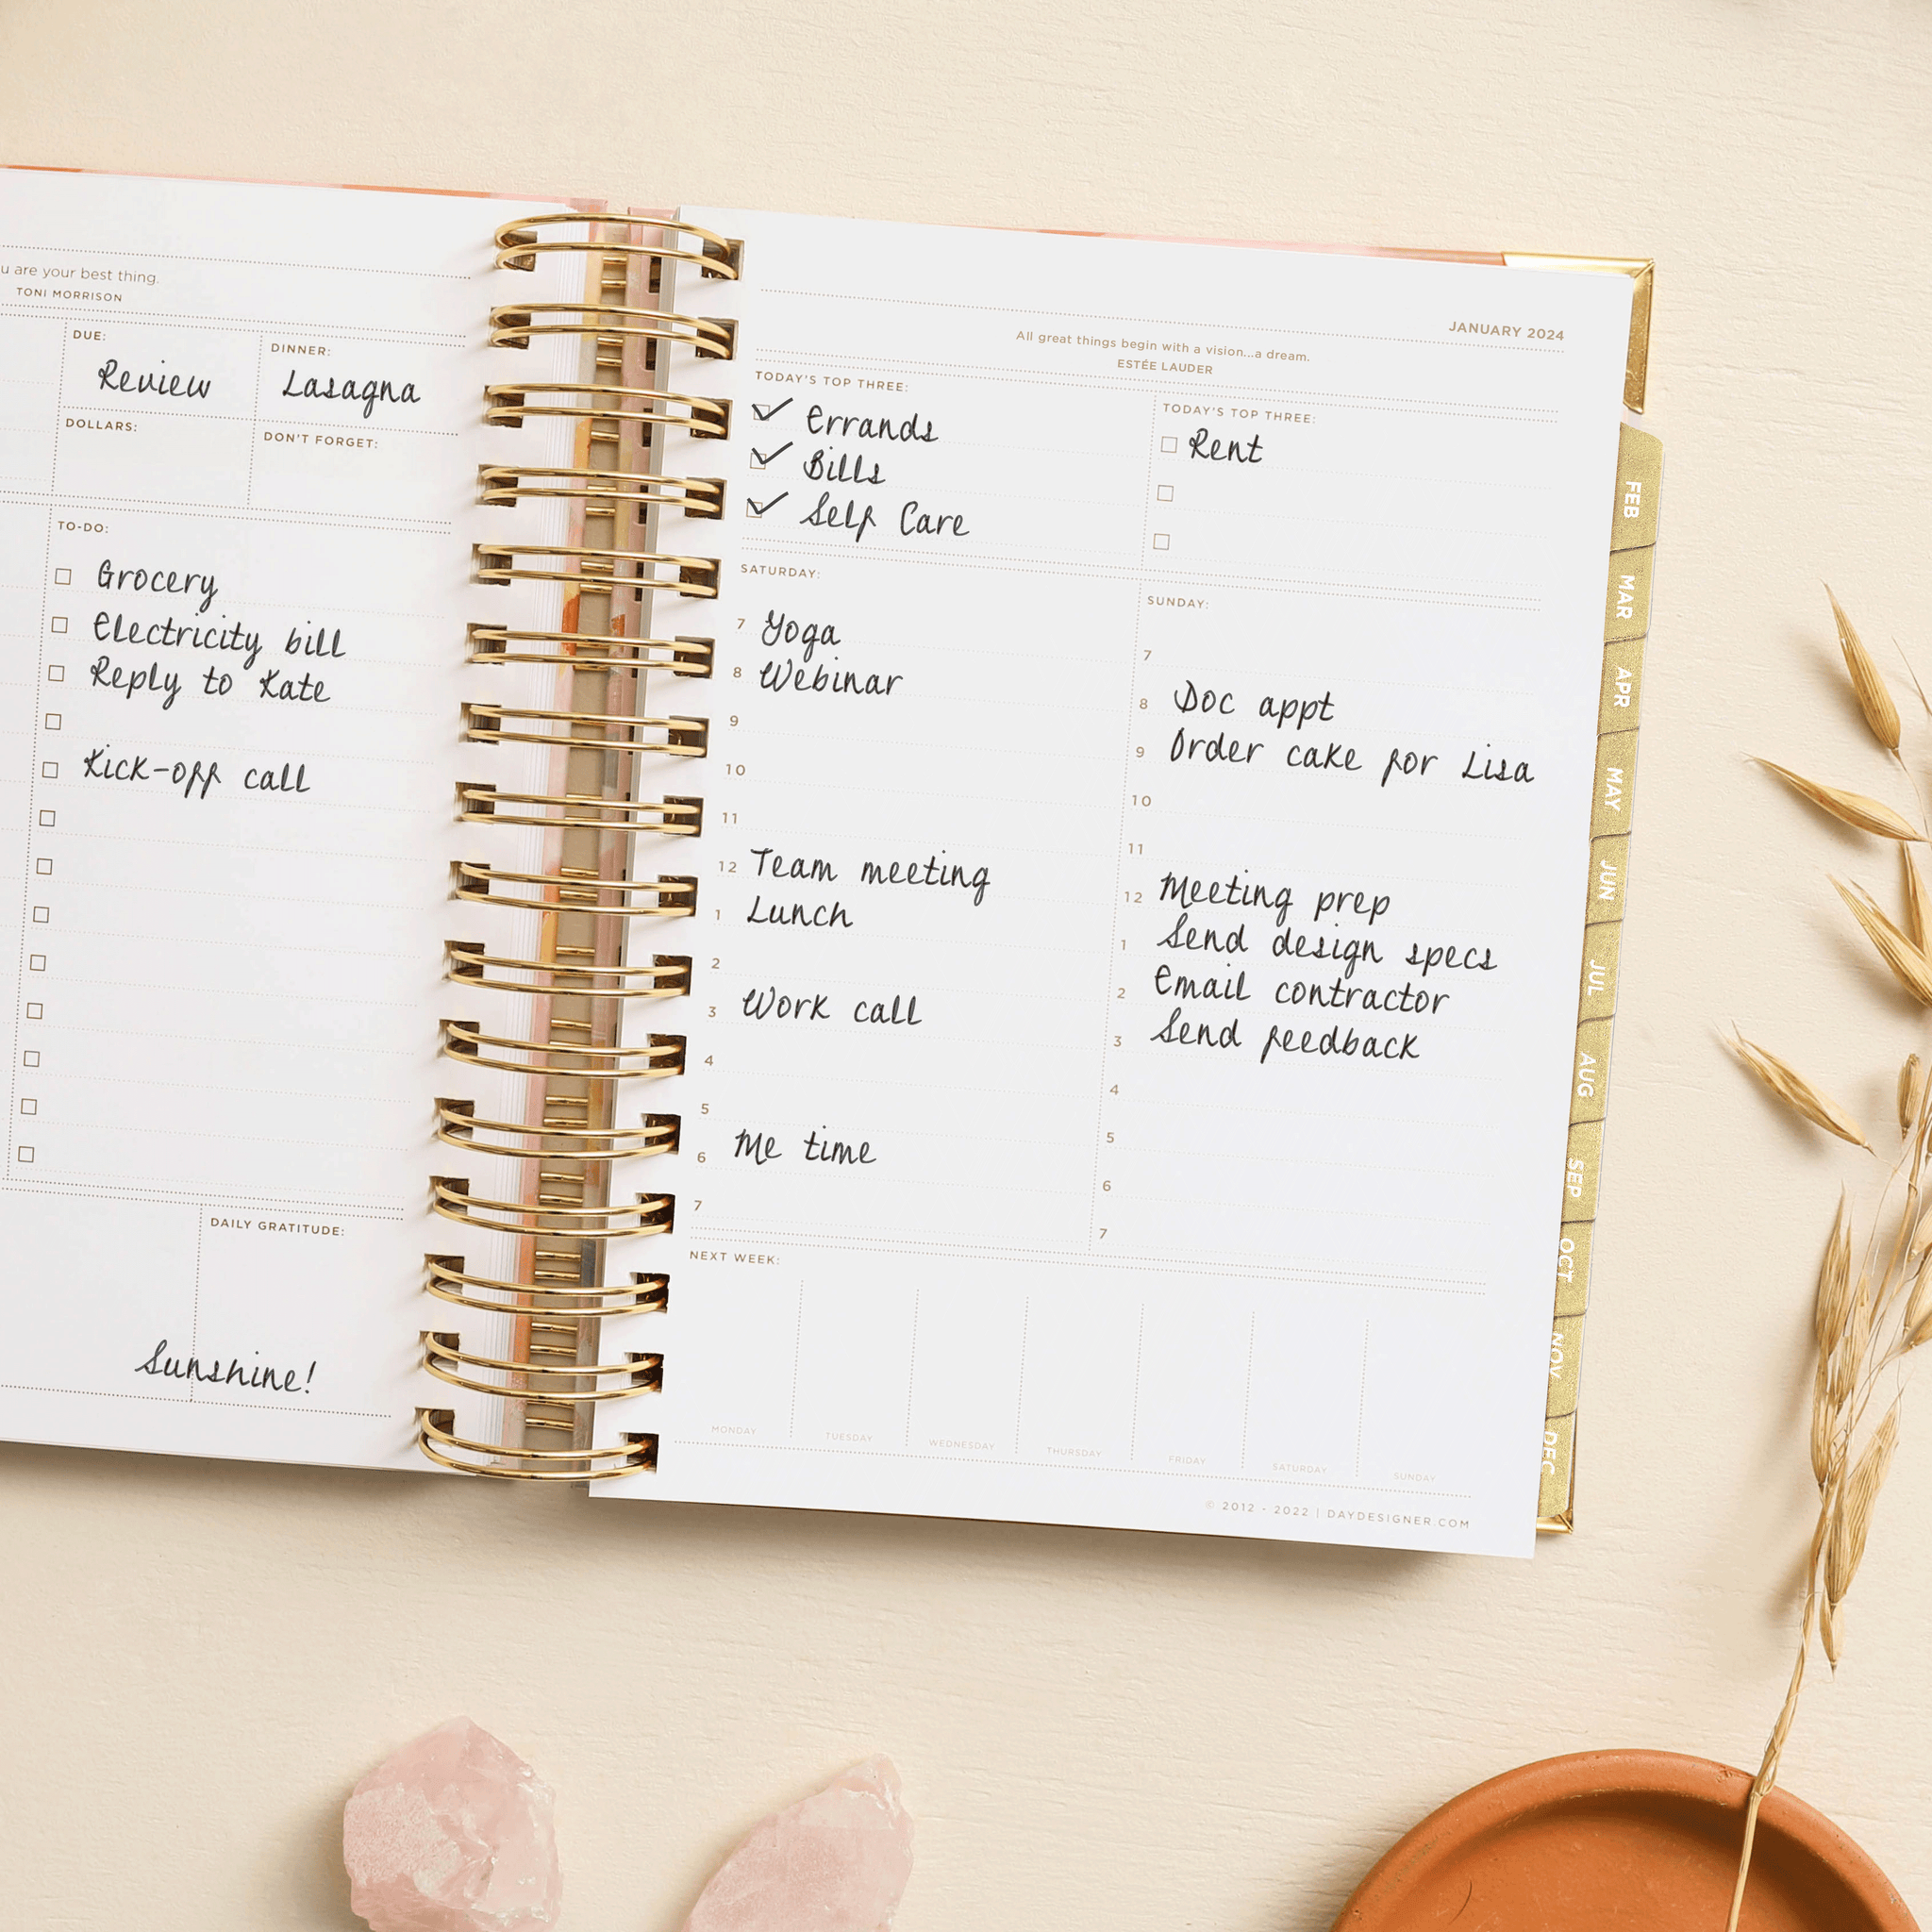 u are your best thing.
TONI MORRISON
DUE:
Review
DINNER:
Lasagna
DOLLARS:
DON'T FORGET:
TO-DO:
Grocery
Electricity bill
Reply to Kate
Kick-off call
DAILY GRATITUDE:
Sunshine!
JANUARY 2024
All great things begin with a vision...a dream.
ESTÉE LAUDER
TODAY'S TOP THREE:
Errands
Bills
Self Care
TODAY'S TOP THREE:
Rent
SATURDAY:
7 Yoga
8 Webinar
9
10
11
12 Team meeting
1 Lunch
2
3 Work call
4
5
6 Me time
7
SUNDAY:
7
8 Doc appt
9 Order cake for Lisa
10
11
12 Meeting prep
1 Send design specs
2 Email contractor
3 Send feedback
4
5
6
7
NEXT WEEK:
MONDAY
TUESDAY
WEDNESDAY
THURSDAY
FRIDAY
SATURDAY
SUNDAY
© 2012 - 2022 | DAYDESIGNER.COM
FEB
MAR
APR
MAY
JUN
JUL
AUG
SEP
OCT
NOV
DEC